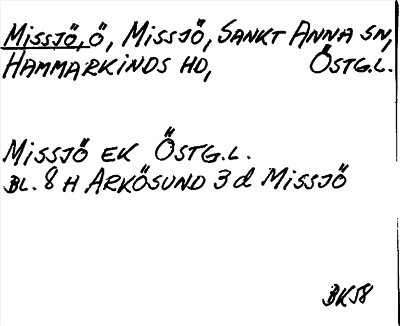 Missjö, ö, Missjö, Sankt Anna sn,
Hammarkinds hd, Östg.l.
Missjö ek Östg.l.
Bl. 8 H Arkösund 3 d Missjö
BK58